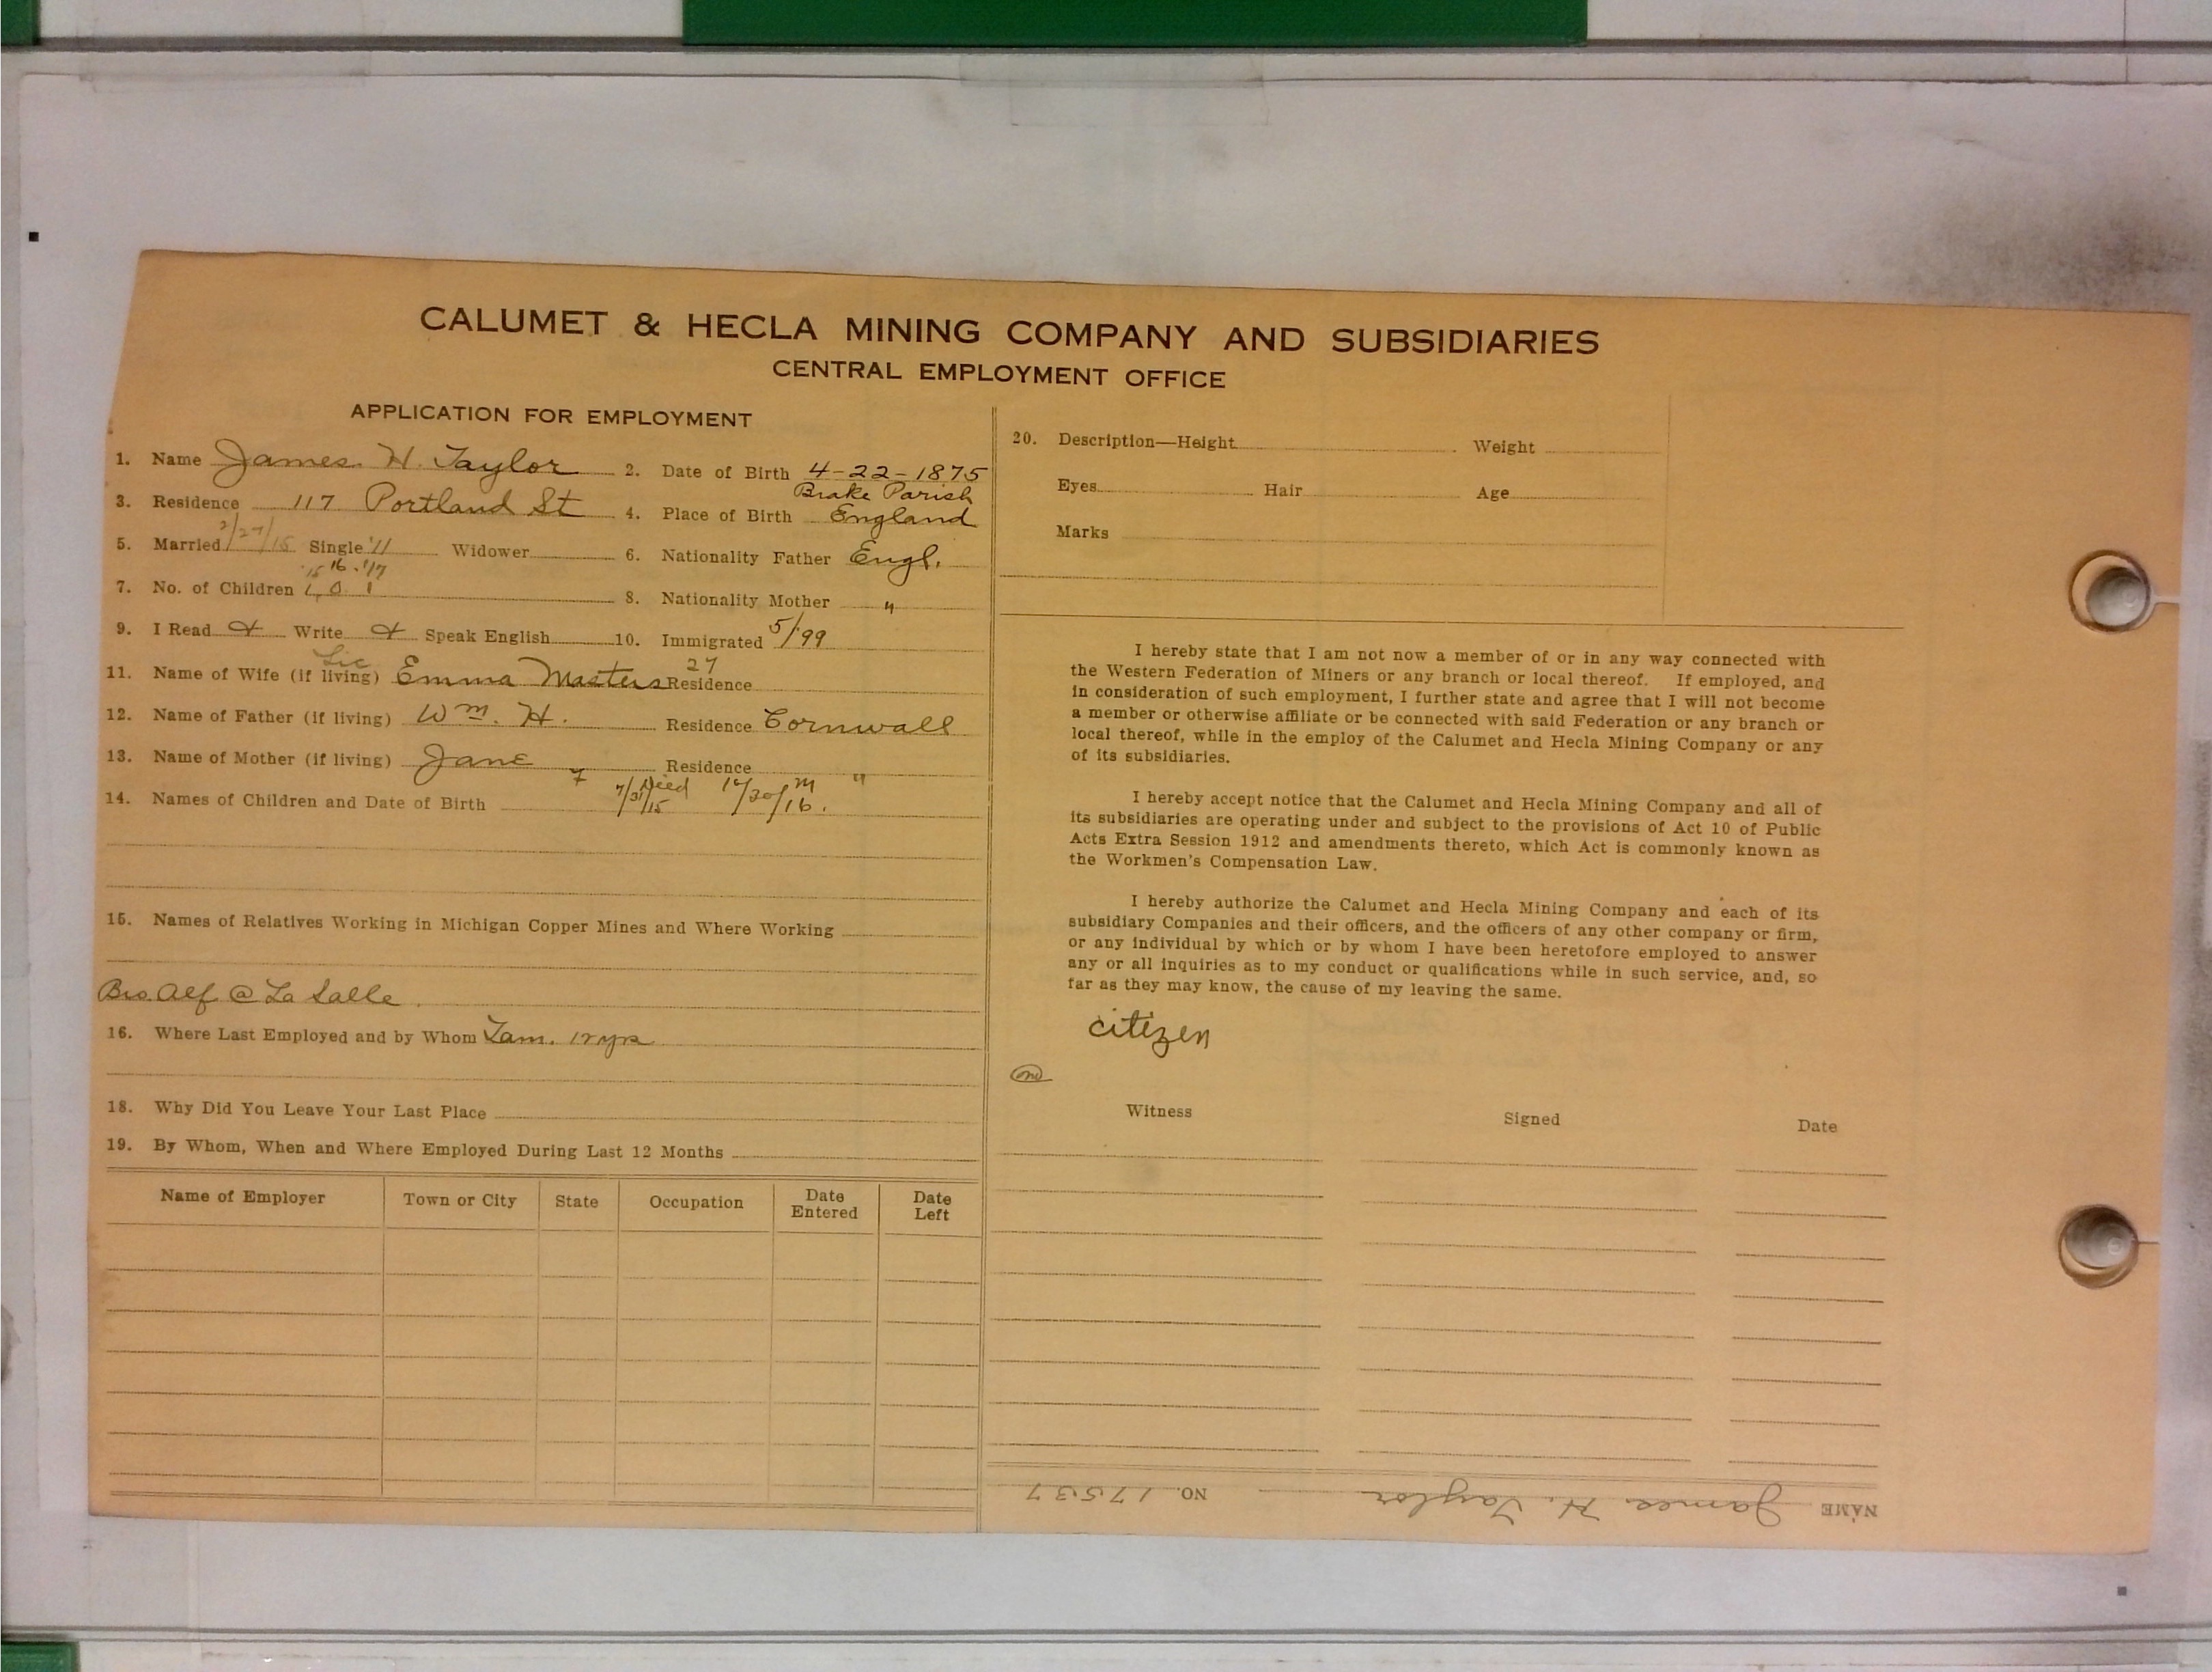 CALUMET & HECLA MINING COMPANY AND SUBSIDIARIES
CENTRAL EMPLOYMENT OFFICE
APPLICATION FOR EMPLOYMENT
1. Name James H. Taylor 2. Date of Birth 4-22-1875
Brake Parish
3. Residence 117 Portland St 4. Place of Birth England
5. Married 2/27/15 Single '11 Widower 6. Nationality Father Engl.
'15 16. '17
7. No. of Children 1, 0 1 8. Nationality Mother "
9. I Read Write Speak English 10. Immigrated 5/'99
Lic
11. Name of Wife (if living) Emma Masters 27 Residence
12. Name of Father (if living) Wm. H. Residence Cornwall
13. Name of Mother (if living) Jane Residence "
14. Names of Children and Date of Birth 7/31/15 Died /30/16. m
15. Names of Relatives Working in Michigan Copper Mines and Where Working
Bro. Alf @ La Salle
16. Where Last Employed and by Whom Tam. 12 yrs
18. Why Did You Leave Your Last Place
19. By Whom, When and Where Employed During Last 12 Months
Name of Employer Town or City State Occupation Date Entered Date Left
20. Description—Height Weight
Eyes Hair Age
Marks
I hereby state that I am not now a member of or in any way connected with
the Western Federation of Miners or any branch or local thereof. If employed, and
in consideration of such employment, I further state and agree that I will not become
a member or otherwise affiliate or be connected with said Federation or any branch or
local thereof, while in the employ of the Calumet and Hecla Mining Company or any
of its subsidiaries.
I hereby accept notice that the Calumet and Hecla Mining Company and all of
its subsidiaries are operating under and subject to the provisions of Act 10 of Public
Acts Extra Session 1912 and amendments thereto, which Act is commonly known as
the Workmen's Compensation Law.
I hereby authorize the Calumet and Hecla Mining Company and each of its
subsidiary Companies and their officers, and the officers of any other company or firm,
or any individual by which or by whom I have been heretofore employed to answer
any or all inquiries as to my conduct or qualifications while in such service, and, so
far as they may know, the cause of my leaving the same.
citizen
Witness Signed Date
NAME James H. Taylor NO. 17537